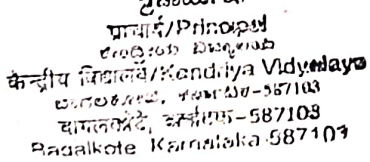 प्राचार्य/Principal
ಕೇಂದ್ರೀಯ ವಿದ್ಯಾಲಯ
केन्द्रीय विद्यालय/Kendriya Vidyalaya
587103
बागलकोट, कर्नाटक-587103
Bagalkote Karnataka-587103